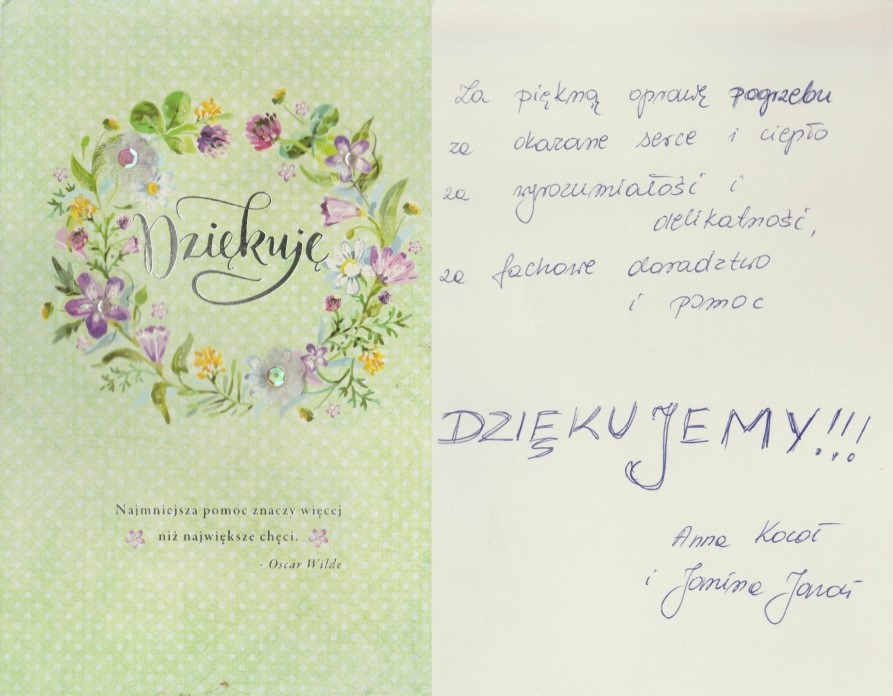 Dziękuję
Najmniejsza pomoc znaczy więcej
niż największe chęci.
- Oscar Wilde
Za piękną oprawę pogrzebu
za okazane serce i ciepło
za wyrozumiałość i
delikatność,
za fachowe doradztwo
i pomoc
DZIĘKUJEMY!!!
Anna Kocoł
i Janina